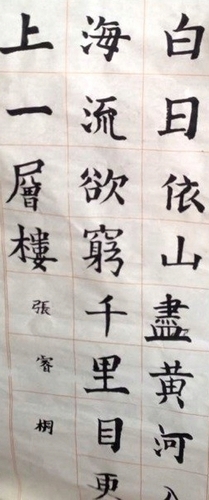 白日依山盡黃河入
海流欲窮千里目更
上一層樓
張睿桐